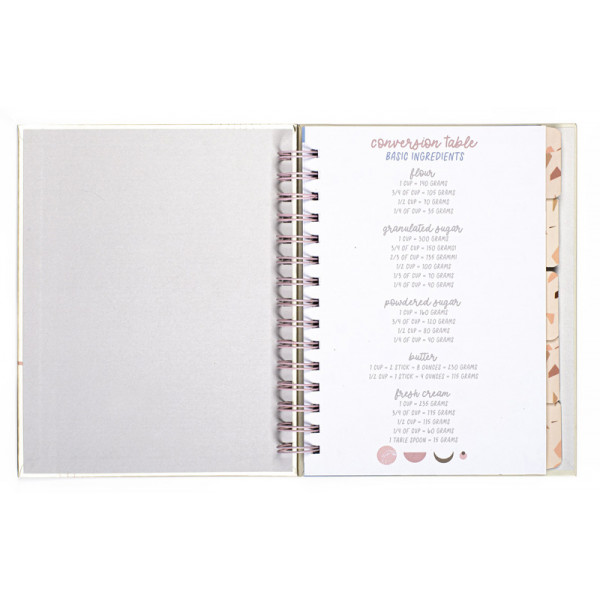 conversion table
BASIC INGREDIENTS
flour
1 CUP = 140 GRAMS
3/4 OF CUP = 105 GRAMS
1/2 CUP = 70 GRAMS
1/4 OF CUP = 35 GRAMS
granulated sugar
1 CUP = 300 GRAMS
3/4 OF CUP = 150 GRAMS
2/3 OF CUP = 135 GRAMS
1/2 CUP = 100 GRAMS
1/3 OF CUP = 70 GRAMS
1/4 OF CUP = 50 GRAMS
powdered sugar
1 CUP = 160 GRAMS
3/4 OF CUP = 120 GRAMS
1/2 CUP = 80 GRAMS
1/4 OF CUP = 40 GRAMS
butter
1 CUP = 2 STICK = 8 OUNZES = 230 GRAMS
1/2 CUP = 1 STICK = 4 OUNZES = 115 GRAMS
fresh cream
1 CUP = 235 GRAMS
3/4 OF CUP = 175 GRAMS
1/2 CUP = 115 GRAMS
1/4 OF CUP = 60 GRAMS
1 TABLE SPOON = 15 GRAMS